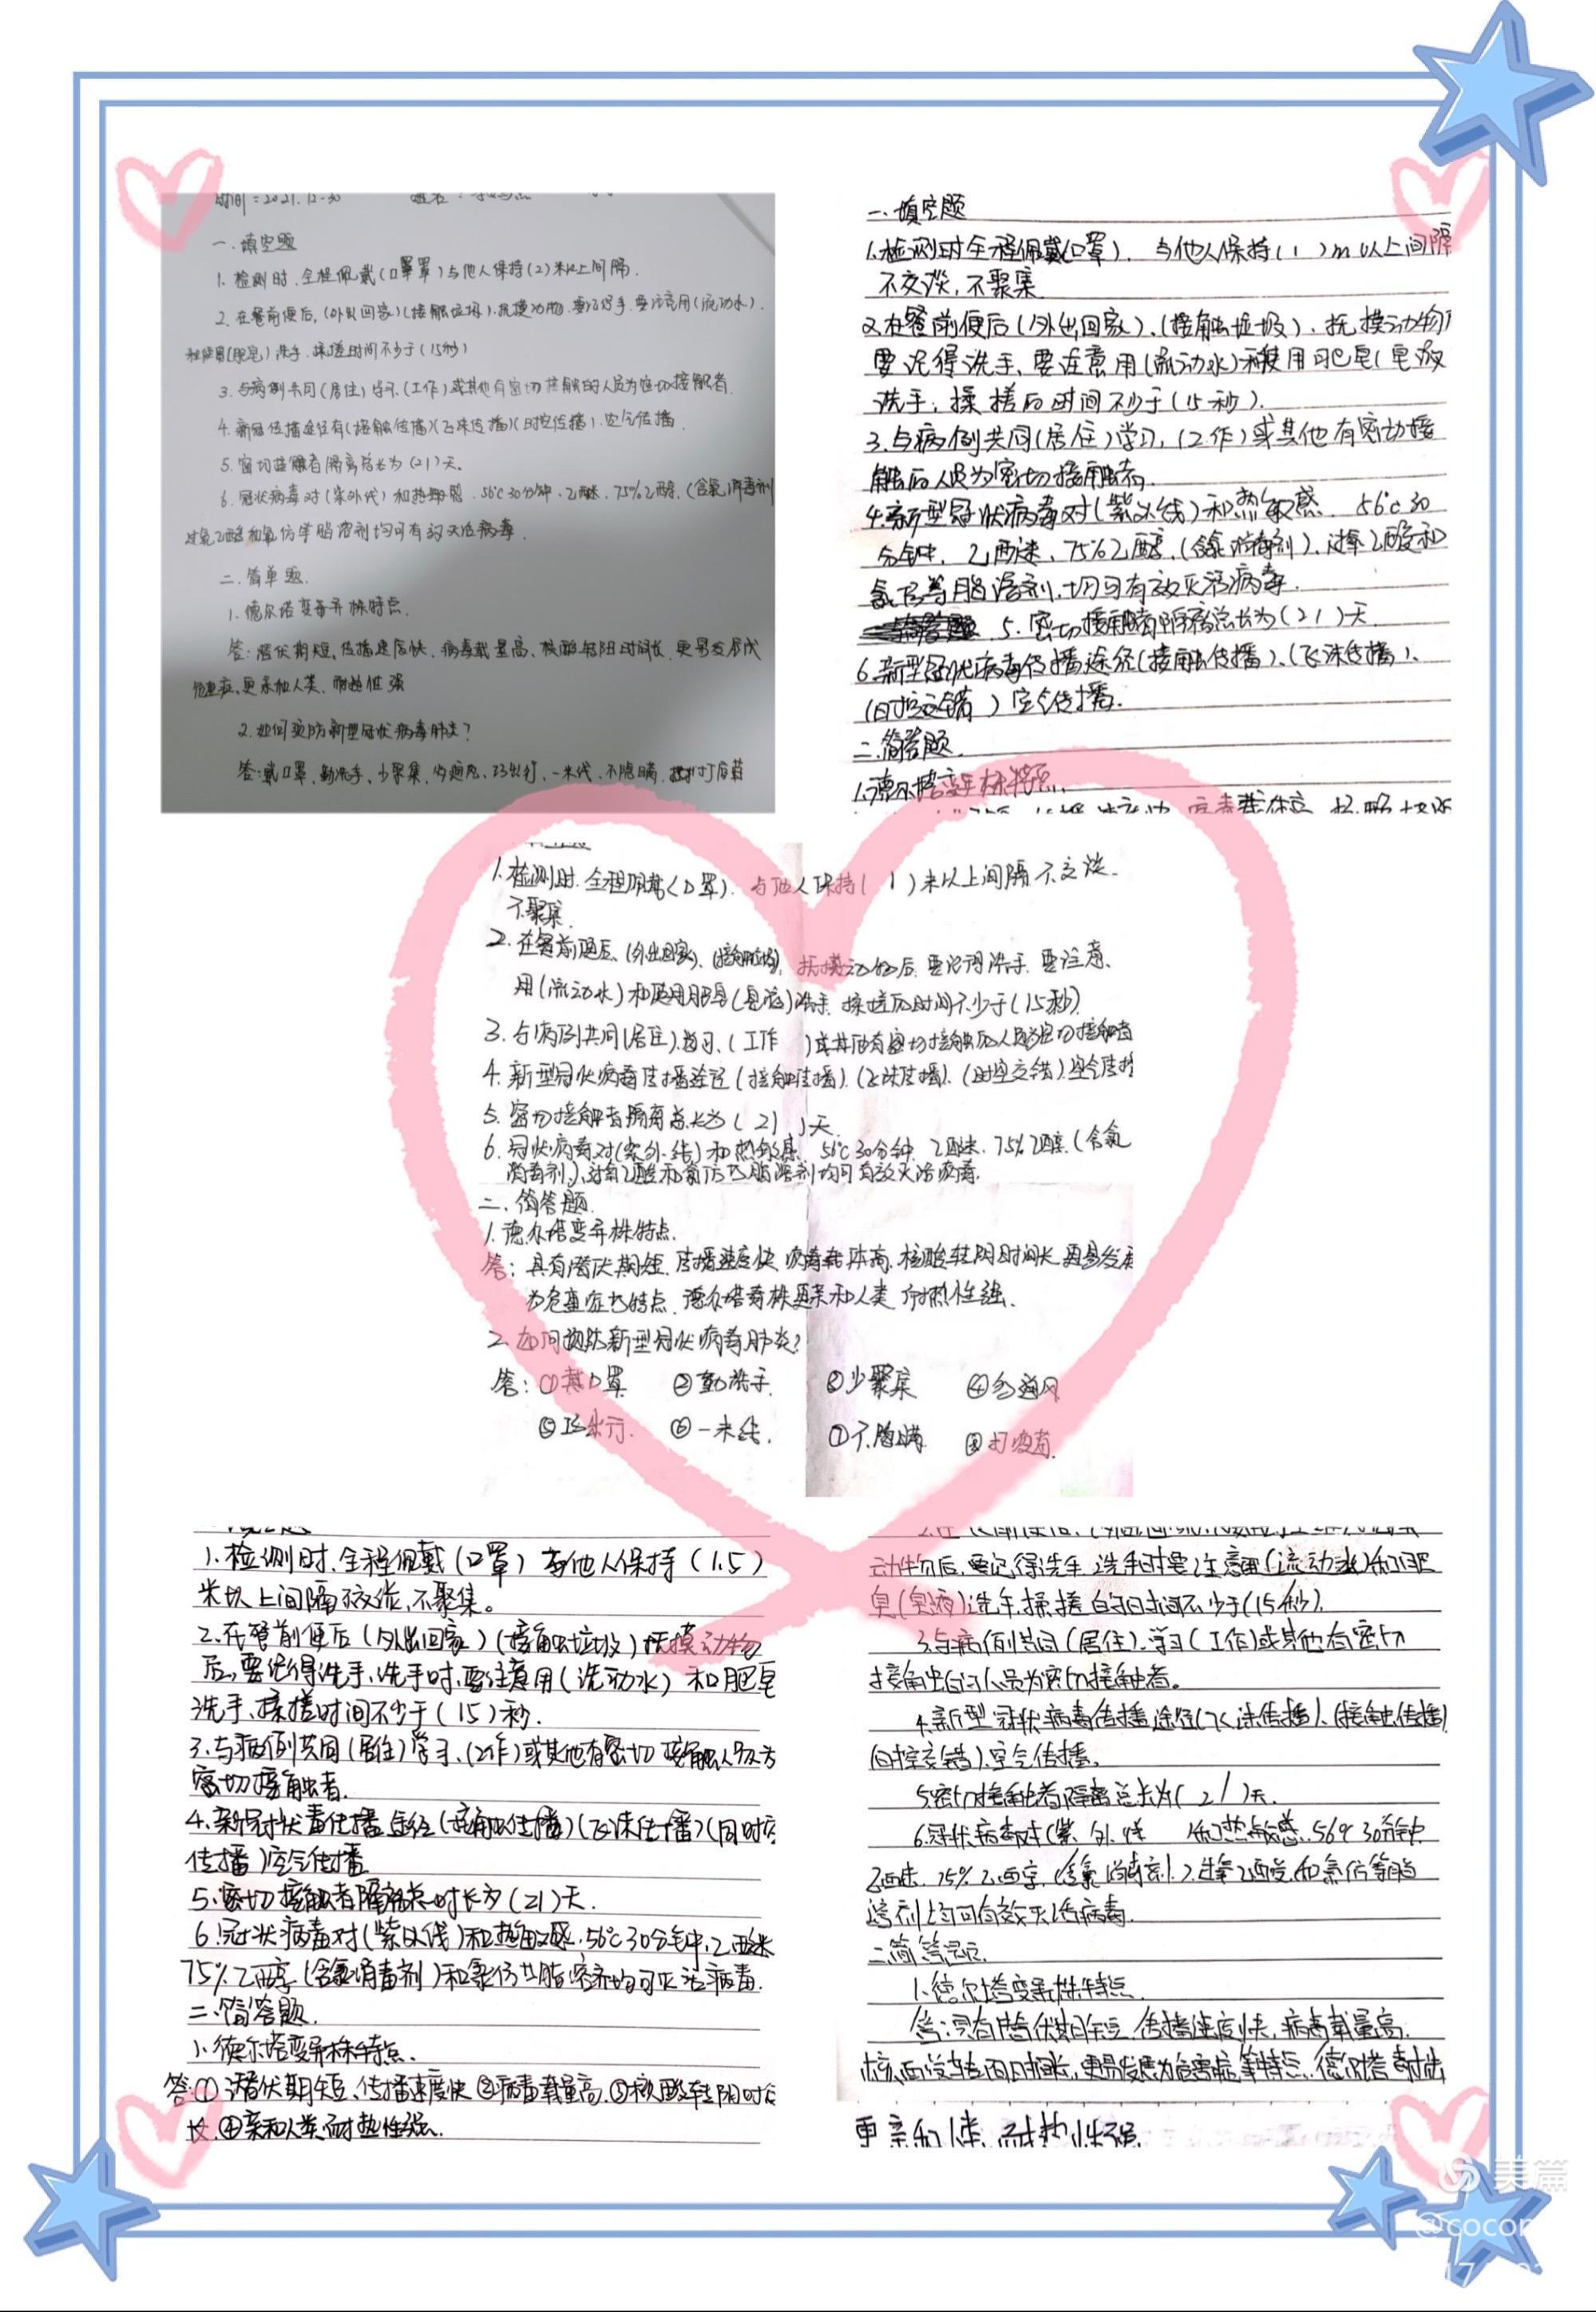 时间:2021.12.30
一.填空题
1.检测时.全程佩戴(口罩)与他人保持(2)米以上间隔.
2.在餐前便后,(外出回家)(接触垃圾).抚摸动物.要记得手.要注意用(流动水).
洗手.揉搓时间不少于(15秒)
3.与病例共同(居住)学习.(工作)或其他有密切接触的人员为密切接触者.
4.新冠传播途径有(接触传播)(飞沫传播)(时空传播).空气传播.
5.密切接触者隔离总长为(21)天.
6.冠状病毒对(紫外线)和热敏感.56℃30分钟.乙醚.75%乙醇.(含氯)消毒剂
过氧乙酸和氯仿等脂溶剂均可有效灭活病毒.
二.简单题.
1.德尔塔变异株特点.
答:潜伏期短,传播速度快.病毒载量高、核酸转阴时间长.更易发展成
危重症,更亲和人类、耐热性强
2.如何预防新型冠状病毒肺炎?
答:戴口罩、勤洗手、少聚集、勿通风、巧出行、一米线、不隐瞒、打疫苗
一.填空题
1.检测时全程佩戴(口罩).与他人保持(1)m以上间隔
不交谈,不聚集
2.在餐前便后(外出回家).(接触垃圾).抚摸动物
要记得洗手、要注意用(流动水)和使用肥皂(皂液
洗手,揉搓后时间不少于(15秒).
3.与病例共同(居住)学习,(工作)或其他有密切接
触后人员为密切接触者.
4.新型冠状病毒对(紫外线)和热敏感.56℃30
分钟.乙醚、75%乙醇、(含氯消毒剂)、过氧乙酸和
氯仿等脂溶剂,均可有效灭活病毒.
5.密切接触者隔离总长为(21)天.
6.新型冠状病毒传播途径(接触传播)、(飞沫传播)、
(时空交错)空气传播.
二.简答题.
1.德尔塔变异株特点.
1.检测时.全程佩戴(口罩).与他人保持(1)米以上间隔不交谈.
不聚集.
2.在餐前便后.(外出回家)、(接触垃圾),抚摸动物后.要记得洗手.要注意、
用(流动水)和使用肥皂(皂液)洗手.揉搓后时间不少于(15秒).
3.与病例共同(居住).学习、(工作)或其他有密切接触后人员为密切接触者
4.新型冠状病毒传播途径(接触传播).(飞沫传播).(时空交错).空气传播
5.密切接触者隔离总长为(21)天.
6.冠状病毒对(紫外线)和热敏感.56℃30分钟.乙醚.75%乙醇.(含氯
消毒剂).过氧乙酸和氯仿等脂溶剂均可有效灭活病毒.
二.简答题.
1.德尔塔变异株特点.
答:具有潜伏期短.传播速度快.病毒载体高.核酸转阴时间长.更易发展
为危重症等特点.德尔塔毒株更亲和人类.耐热性强.
2.如何预防新型冠状病毒肺炎?
答:①戴口罩 ②勤洗手. ③少聚集 ④勿通风
⑤巧出行. ⑥一米线. ⑦不隐瞒. ⑧打疫苗.
1.检测时.全程佩戴(口罩)与他人保持(1.5)
米以上间隔不交谈,不聚集。
2.在餐前便后(外出回家)(接触垃圾)抚摸动物
后,要记得洗手、洗手时,要注意用(流动水)和肥皂
洗手、揉搓时间不少于(15)秒.
3.与病例共同(居住)学习、(工作)或其他有密切接触人员为
密切接触者.
4.新冠状毒传播途径(接触传播)(飞沫传播)(同时空
传播)空气传播
5.密切接触者隔离总时长为(21)天.
6.冠状病毒对(紫外线)和热敏感.56℃30分钟,乙醚
75%乙醇(含氯消毒剂)和氯仿等脂溶剂均可灭活病毒.
二.简答题.
1.德尔塔变异株特点.
答:①潜伏期短、传播速度快②病毒载量高.③核酸转阴时间
长.④亲和人类,耐热性强.
动物后,要记得洗手.洗手时要注意用(流动水)和肥
皂(皂液)洗手.揉搓的时间不少于(15秒).
3.与病例共同(居住).学习(工作)或其他有密切
接触的人员为密切接触者。
4.新型冠状病毒传播途径(飞沫传播)、(接触传播)
(时空交错).空气传播。
5.密切接触者隔离总长为(21)天.
6.冠状病毒对(紫外线 和热敏感.56℃30分钟
乙醚.75%乙醇.(含氯消毒剂).过氧乙酸和氯仿等脂
溶剂均可有效灭活病毒.
二.简答题.
1.德尔塔变异株特点.
答:具有潜伏期短.传播速度快.病毒载量高.
核酸转阴时间长,更易发展为危害症等特点.德尔塔毒株
更亲和人类,耐热性强.
美篇